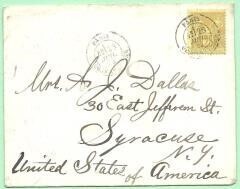 PARIS
PARIS
Mrs. A. J. Dallas
30 East Jefferson St.
Syracuse
N.Y.
United States of America